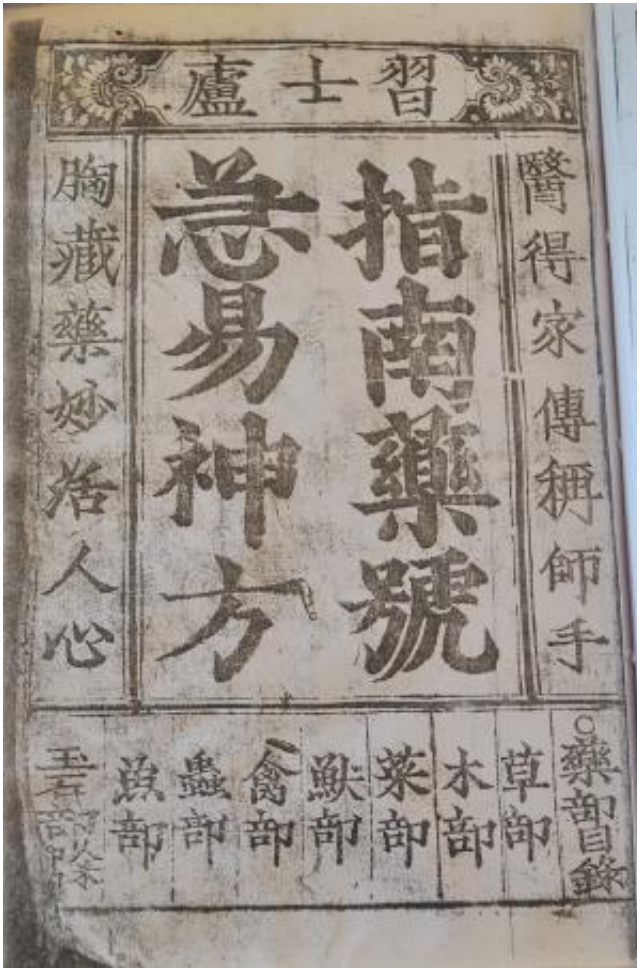 習士廬
醫得家傳稱師手
指南藥號
急易神方
胸藏藥妙活人心
○藥部目錄
草部
木部
菜部
獸部
禽部
蟲部
魚部
玉石部